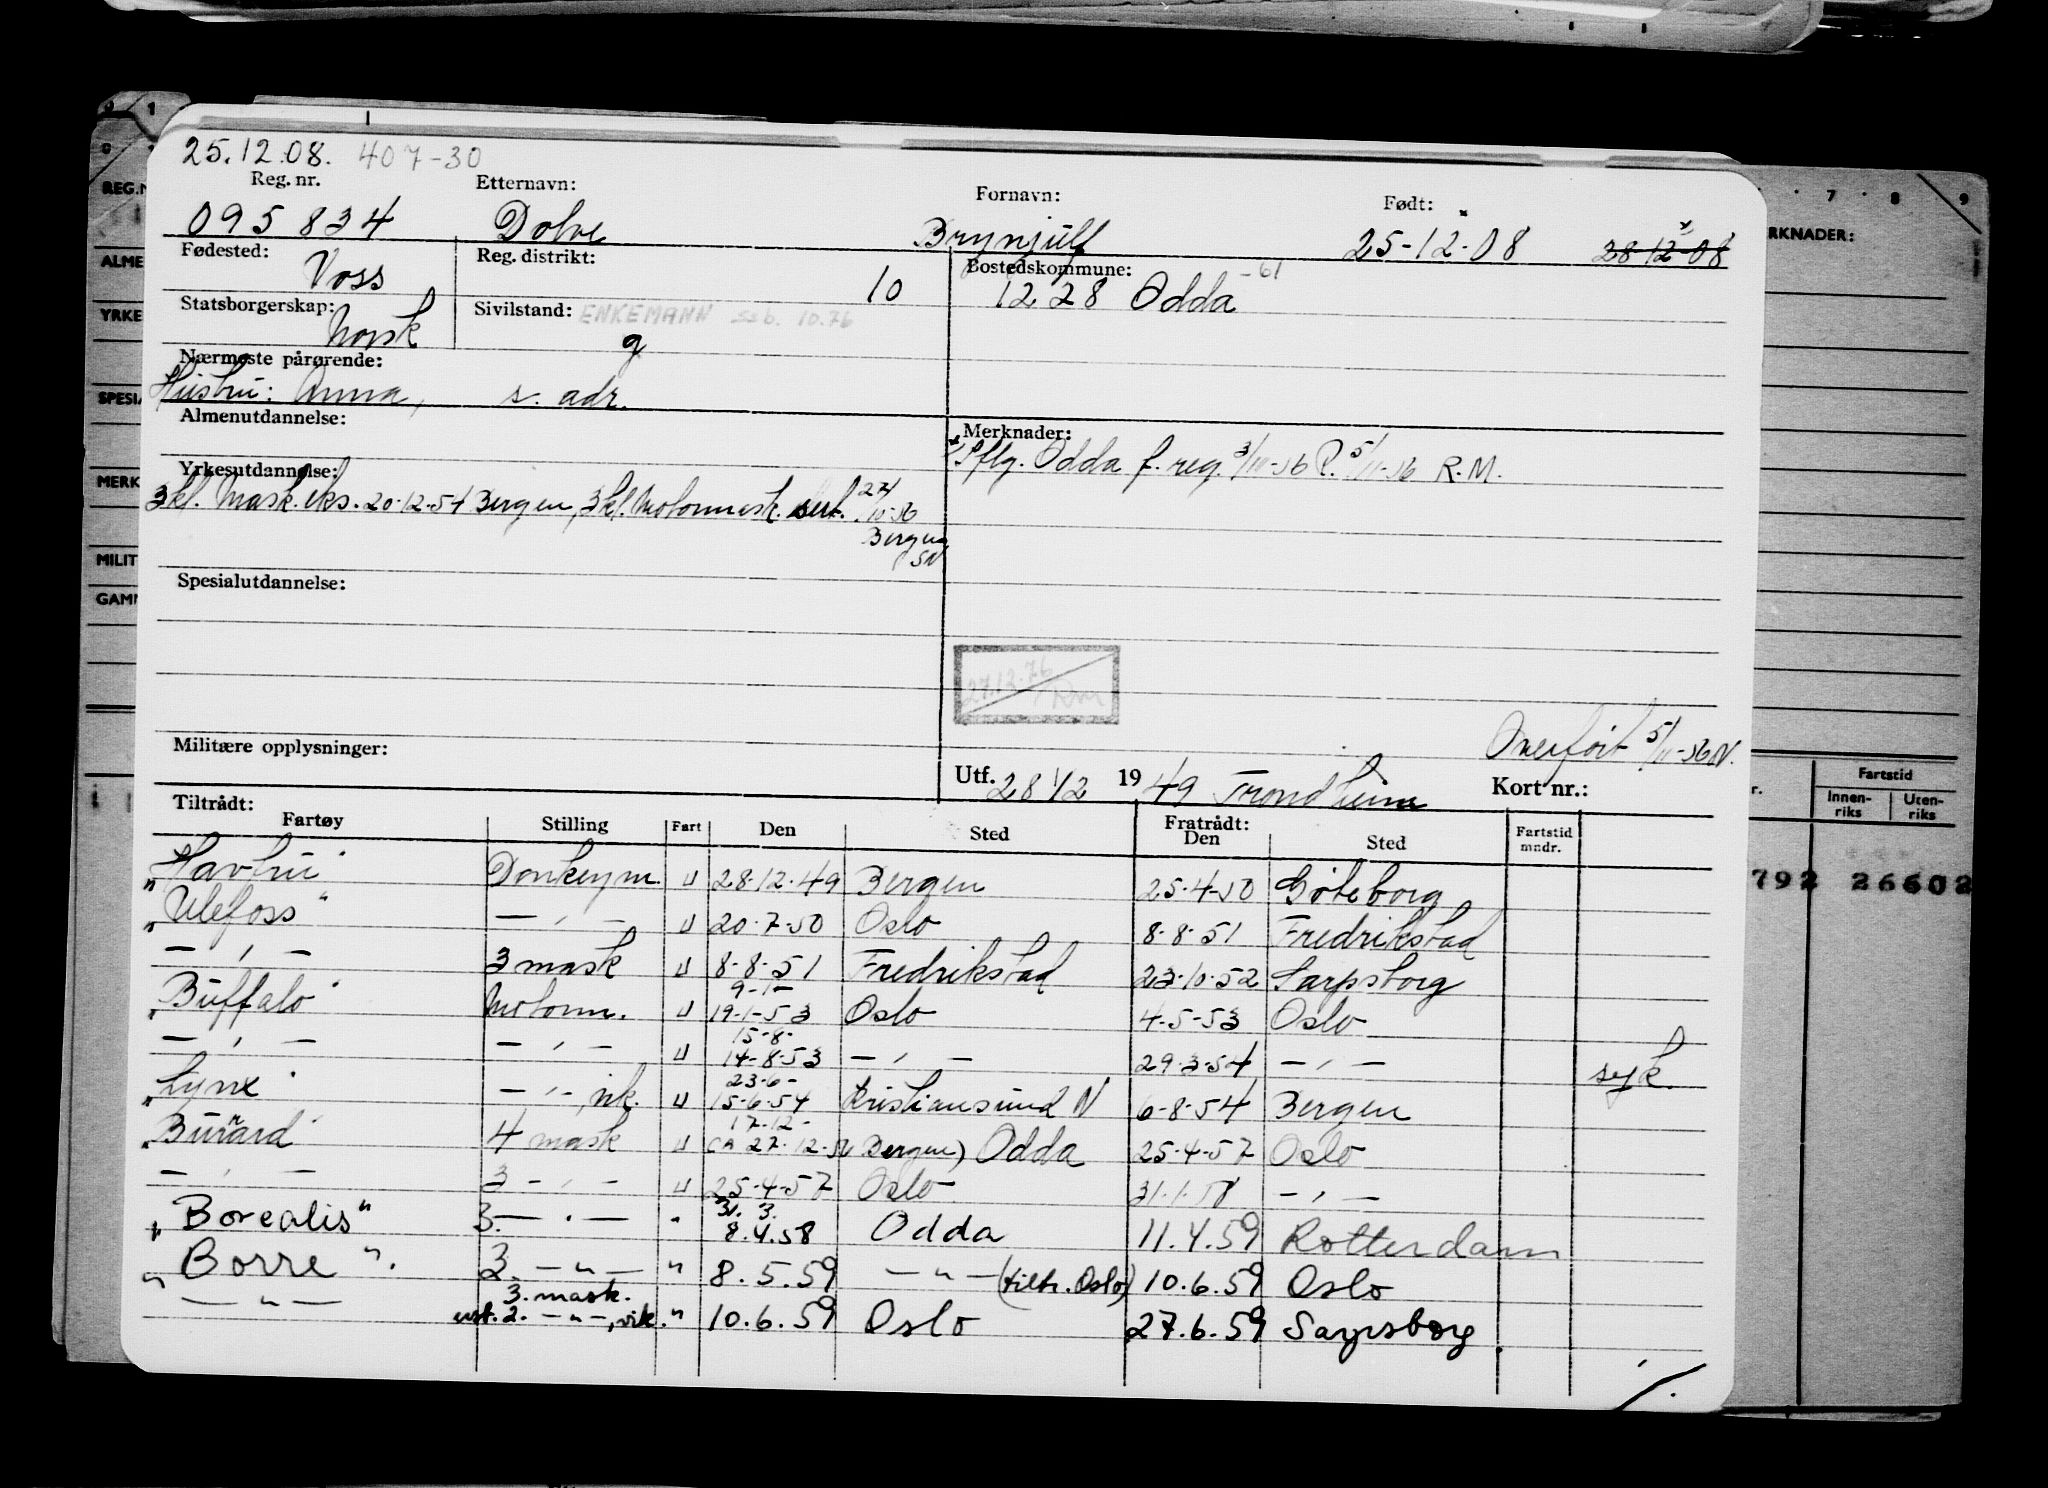 25.12.08. 407-30
Reg. nr. Etternavn: Fornavn: Født:
095834 Dolve Brynjulf 25-12-08 28-12-08
Fødested: Voss Reg. distrikt: 10 Bostedskommune: 1228 Odda -61
Statsborgerskap: Norsk Sivilstand: ENKEMANN ssb. 10.76 g
Nærmeste pårørende:
Hustru: Anna, s. adr.
Almenutdannelse: Merknader:
Sflg. Odda f. reg. 3/11-56 P. 5/11-56 R.M.
Yrkesutdannelse:
3 kl. Mask. eks. 20-12-54 Bergen, 3 kl. Motormask. sert. 24/10-56
Bergen
SN
Spesialutdannelse:
27.12.76
Overført 5/11-56 N.
Militære opplysninger:
Utf. 28 1/2 1949 Trondheim Kort nr.:
Tiltrådt: Fratrådt:
Fartøy Stilling Fart Den Sted Den Sted Fartstid mndr.
"Havbru" Donkeym. u 28.12.49 Bergen 25-4-50 Göteborg
"Ulefoss" — , — u 20-7-50 Oslo 8-8-51 Fredrikstad
— , — 3 mask u 8-8-51 Fredrikstad 23-10-52 Sarpsborg
9-1-
"Buffalo" Motorm. u 19-1-53 Oslo 4-5-53 Oslo
15-8-
— , — — , — u 14-8-53 — , — 29-3-54 — , — syk.
23-6-
"Lynx" — , —, vik. u 15-6-54 Kristiansund N 6-8-54 Bergen
17-12-
"Burrard" 4 mask u ca 27-12-56 Bergen) Odda 25-4-57 Oslo
— , — 3 — , — u 25-4-57 Oslo 31.1.58 — , —
31. 3.
"Borealis" 3. — . — " 8.4.58 Odda 11.4.59 Rotterdam
"Borre". 2. — " — " 8.5.59 — " — (tiltr. Oslo) 10.6.59 Oslo
3. mask.
— " — ust. 2. — " —, vik. " 10.6.59 Oslo 27.6.59 Sarpsborg.
REG.N
ALME
YRKE
SPESIA
MERK
MILIT
GAMM
7 8 9
RKNADER:
Fartstid
Innen-riks Uten-riks
792 26602